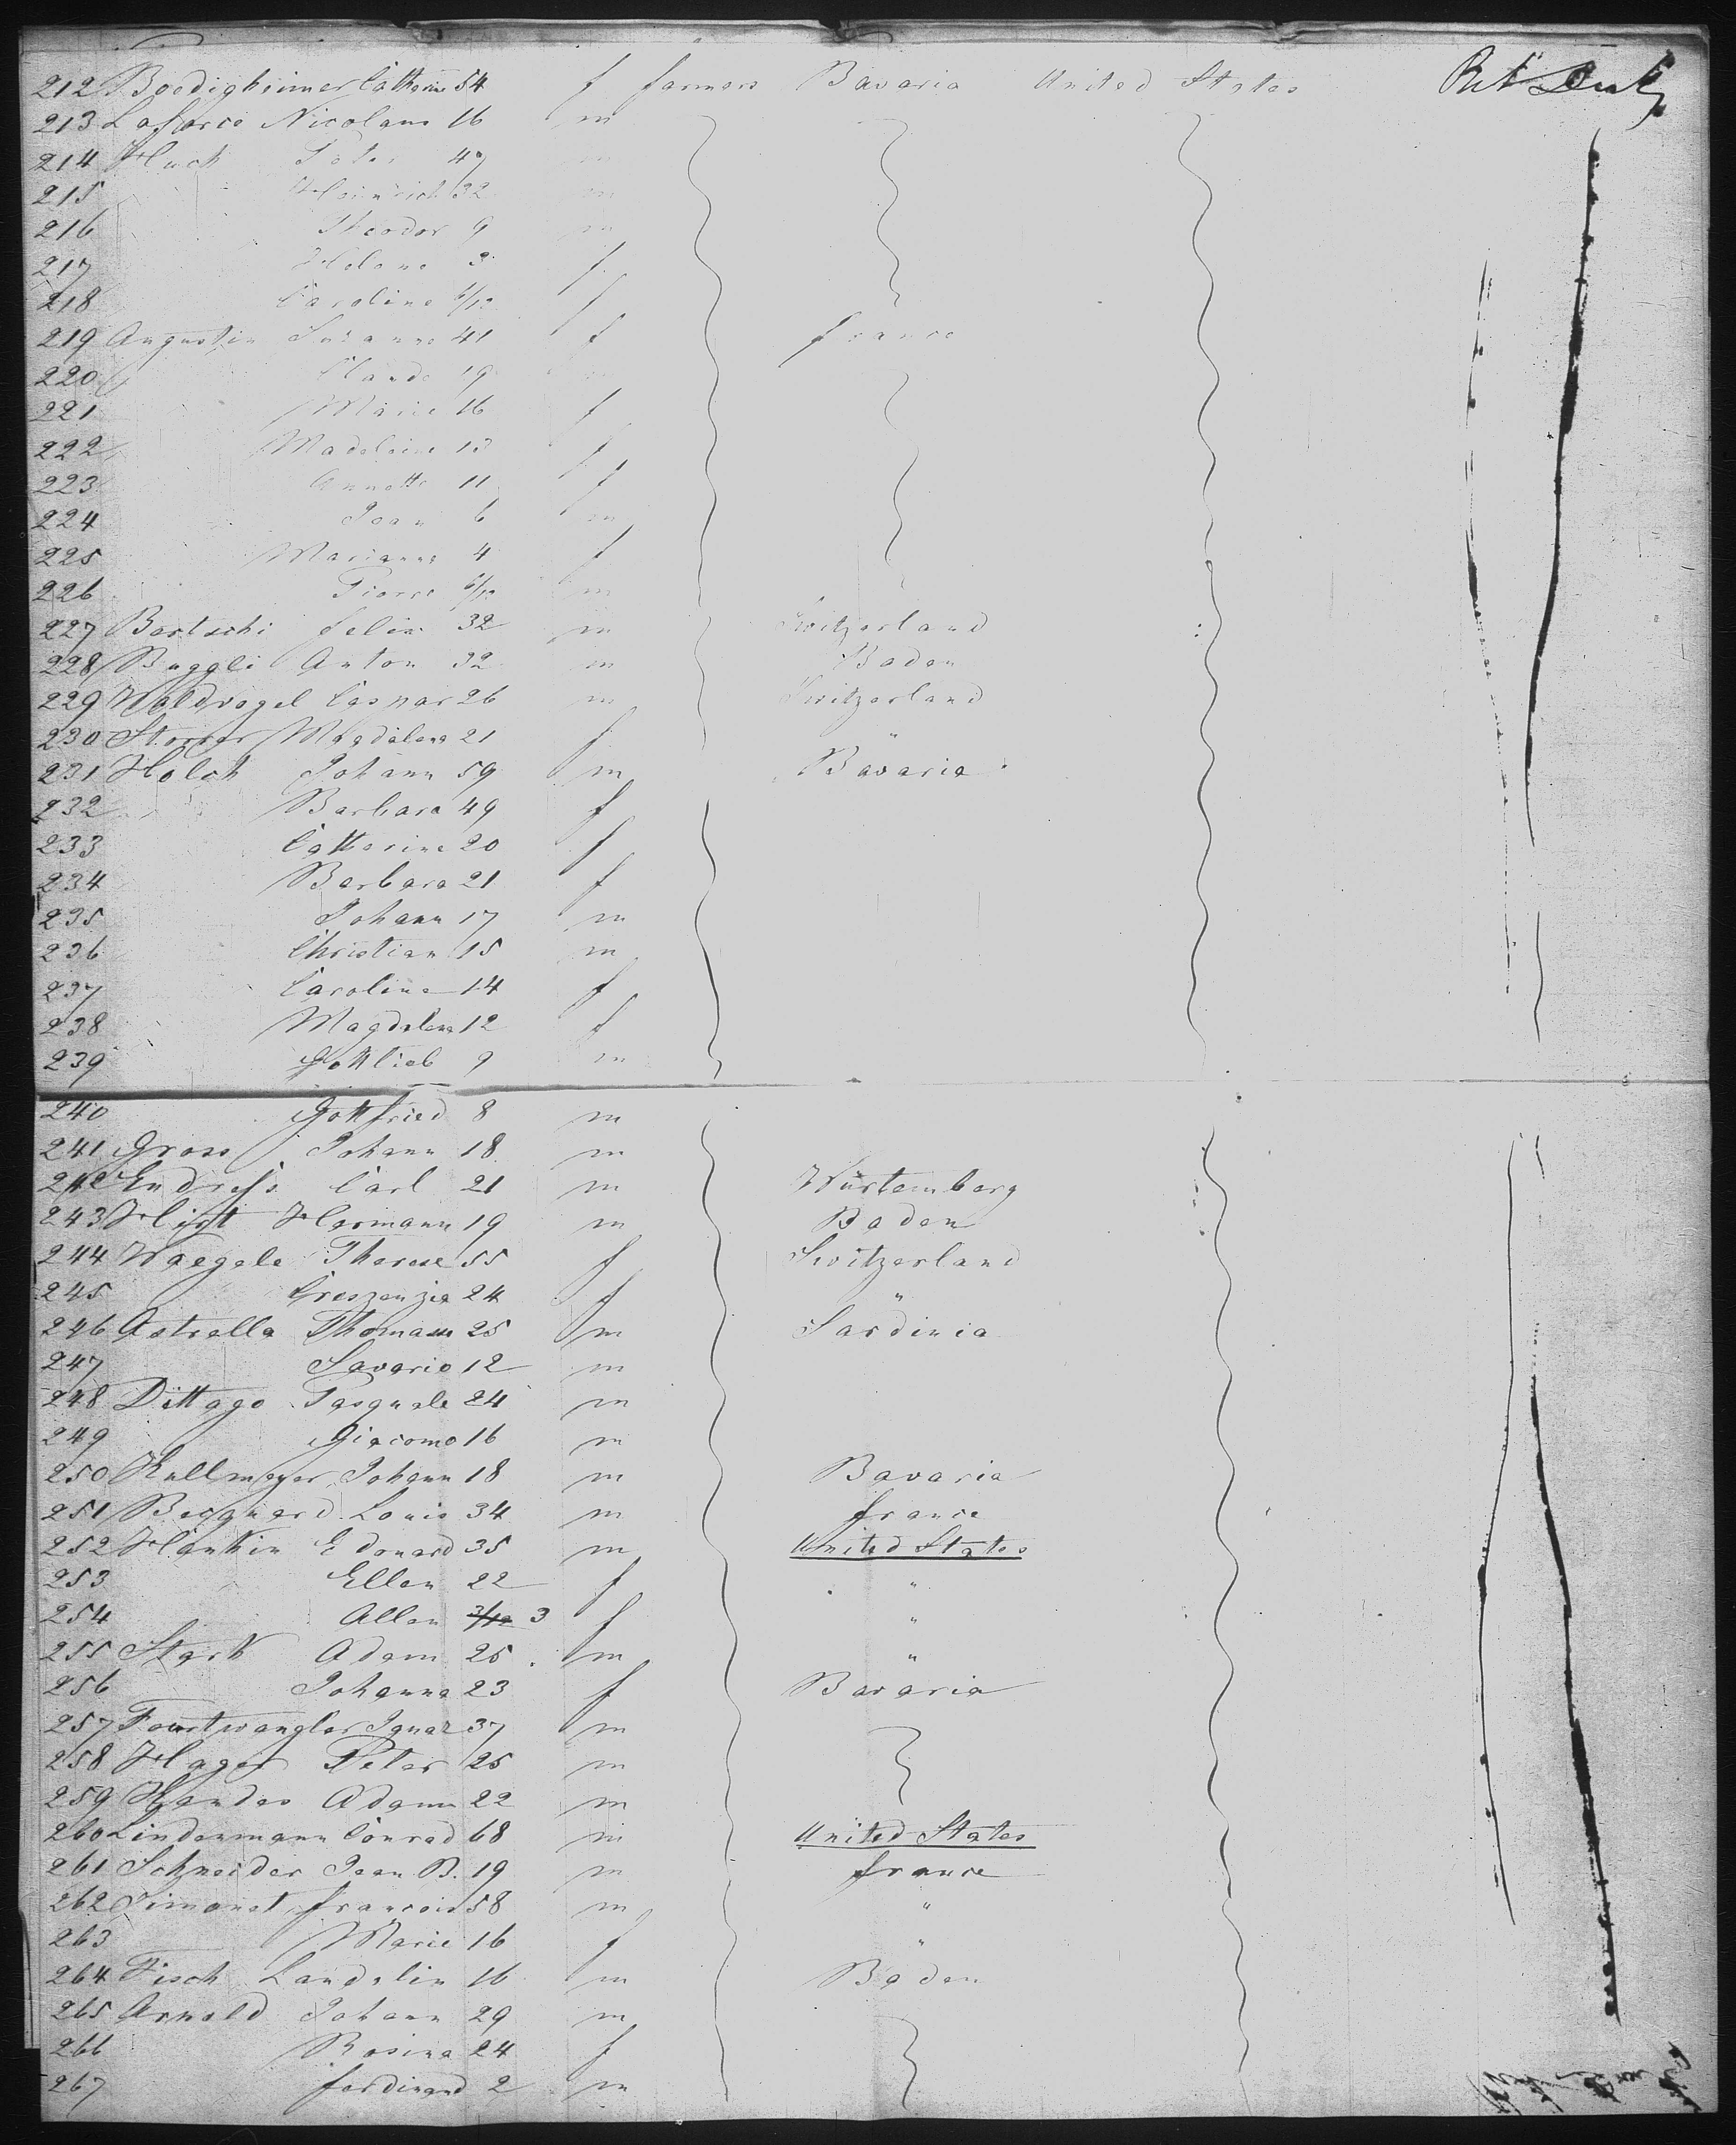 212 Boedigheimer Catherine 54 f farmers Bavaria United States Bet Deck
213 Laforce Nicolaus 16 m
214 Huck Peter 47 m
215 Heinrich 32 m
216 Theodor 9 m
217 Helene 3 f
218 Caroline 6/12 f
219 Augustin Suzanne 41 f france
220 Claude 19 m
221 Marie 16 f
222 Madeleine 13 f
223 Annette 11 f
224 Jean 6 m
225 Marianne 4 f
226 Pierre 6/12 m
227 Bertschi felix 32 m Switzerland
228 Buggli Anton 32 m Baden
229 Waldvogel Caspar 26 m Switzerland
230 Storrer Magdalena 21 f "
231 Holch Johann 59 m Bavaria
232 Barbara 49 f
233 Catherine 20 f
234 Barbara 21 f
235 Johann 17 m
236 Christian 15 m
237 Caroline 14 f
238 Magdalena 12 f
239 Gottlieb 9 m
240 Gottfried 8 m
241 Gross Johann 18 m
242 Endress Carl 21 m Würtemberg
243 Hirt Hermann 19 m Baden
244 Waegele Therese 55 f Switzerland
245 Creszenzia 24 f "
246 Astrella Thomas 25 m Sardinia
247 Saverio 12 m
248 Dittago Pasquale 24 m
249 Giacomo 16 m
250 Kullmeyer Johann 18 m Bavaria
251 Becquard Louis 34 m france
252 Hankin Edouard 35 m United States
253 Ellen 22 f "
254 Allen 3/12 3 f "
255 Stark Adam 25 m "
256 Johanna 23 f Bavaria
257 Fourtwangler Ignaz 37 m
258 Hager Peter 25 m
259 Adam 22 m
260 Lindenmann Conrad 68 m United States
261 Schneider Jean B. 19 m france
262 Simonet francois 58 m "
263 Marie 16 f "
264 Fisch Landelin 16 m Baden
265 Arnold Johann 29 m
266 Rosina 24 f
267 ferdinand 2 m